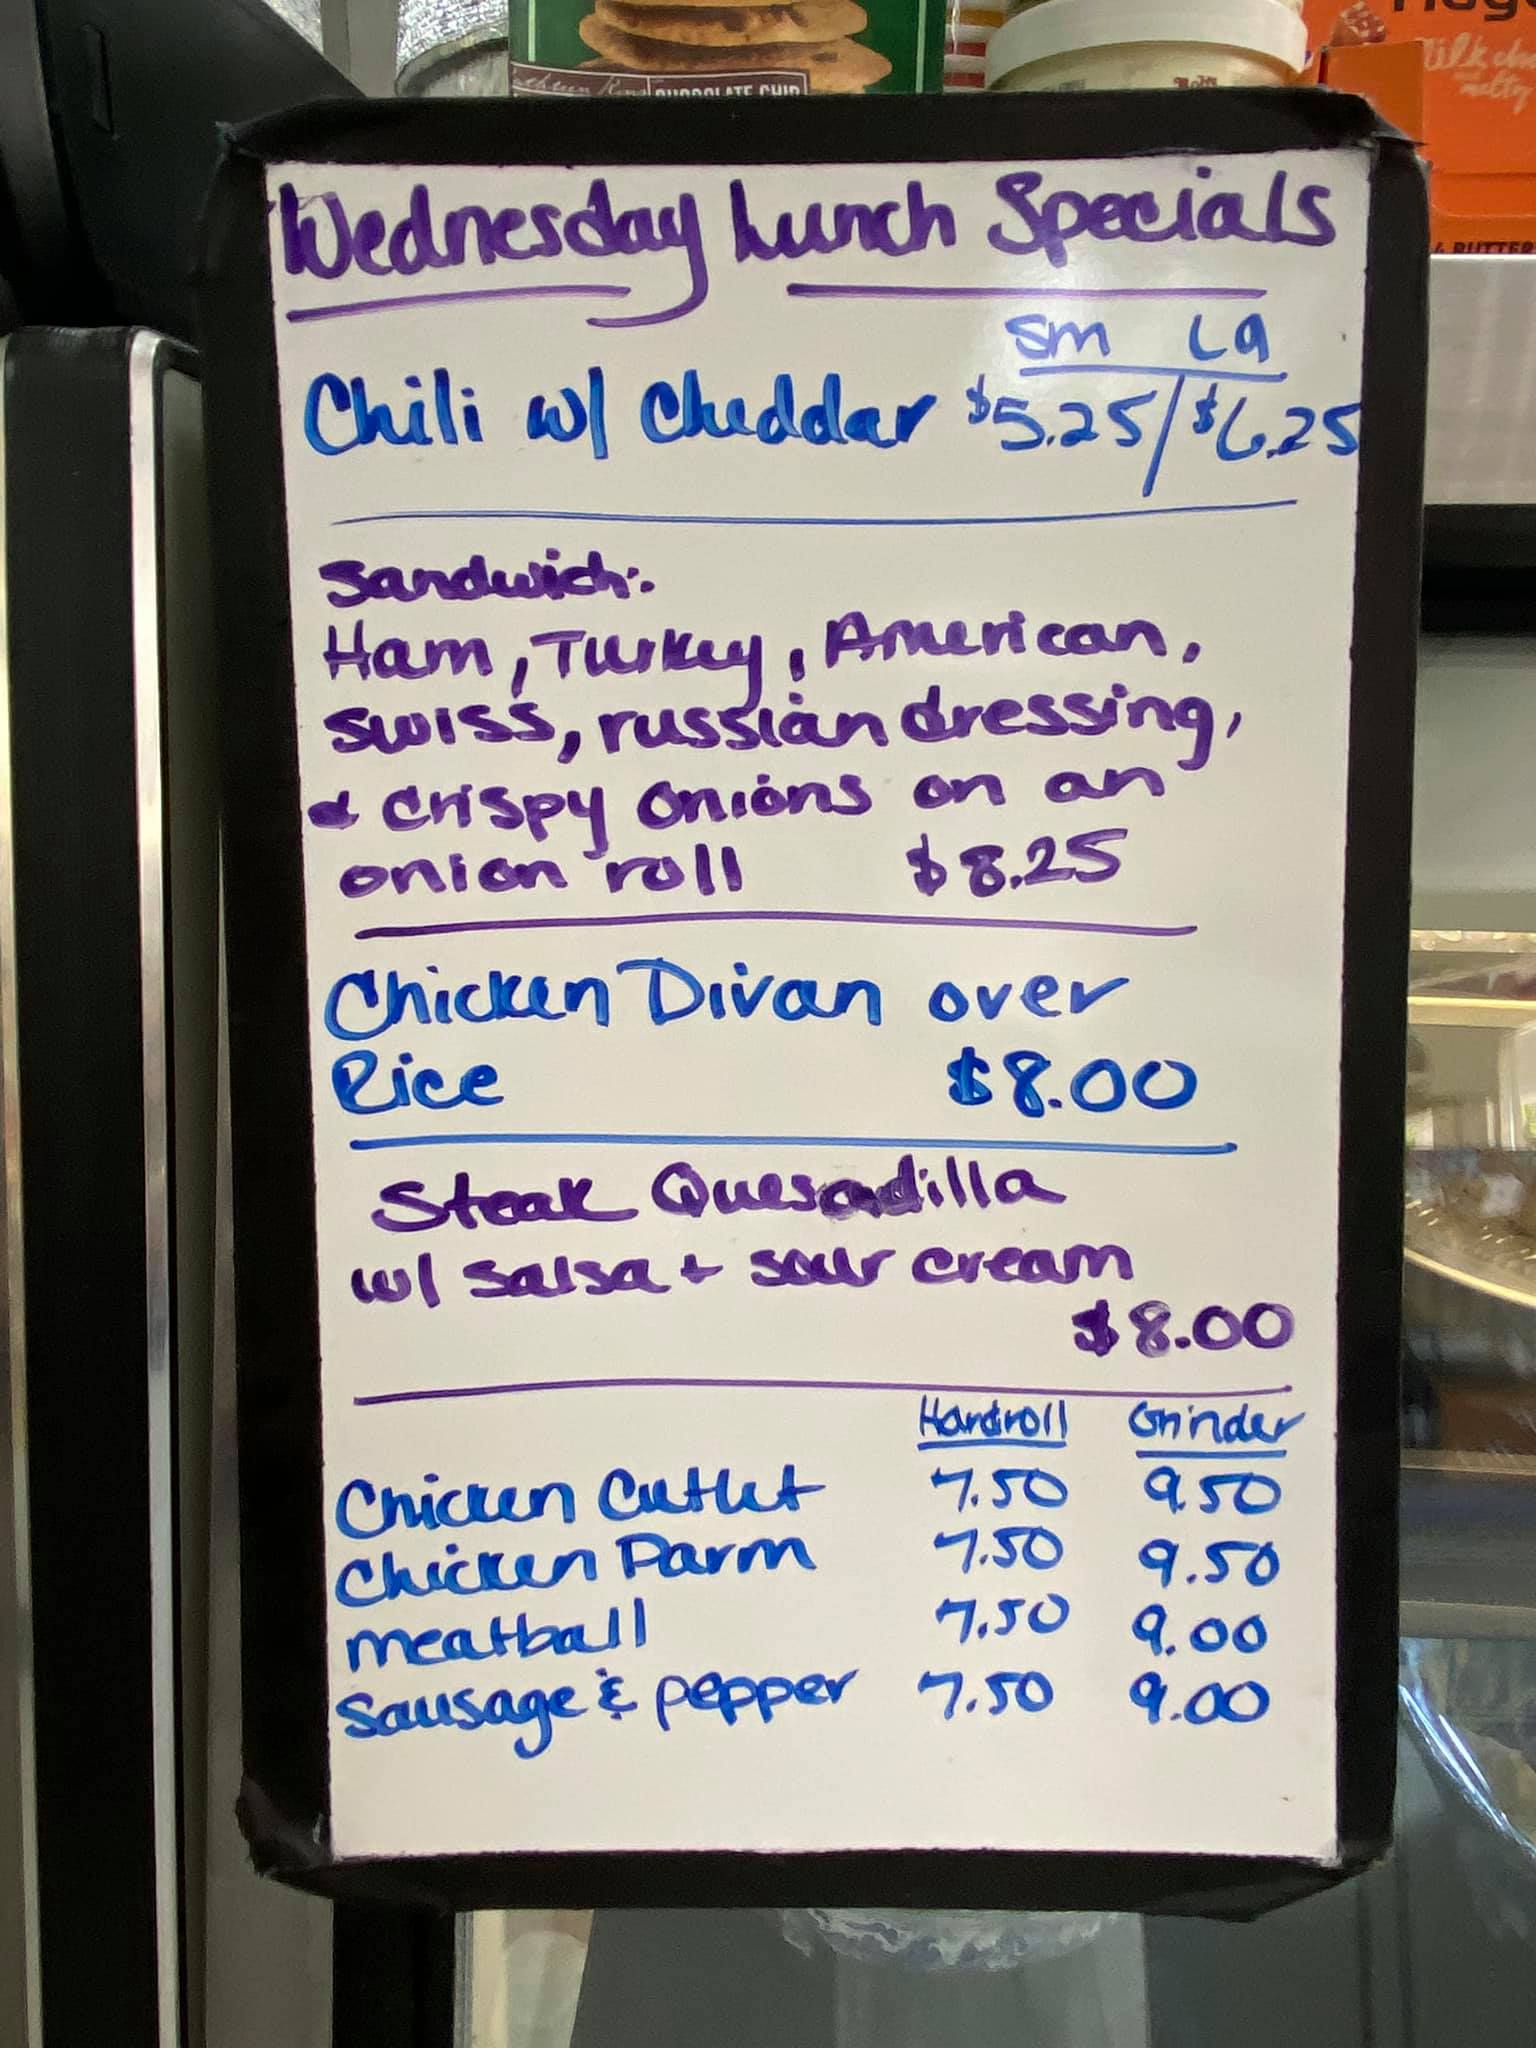 CHOCOLATE CHIP
Wednesday Lunch Specials
Sm Lg
Chili w/ Cheddar $5.25/$6.25
Sandwich:
Ham, Turkey, American,
Swiss, russian dressing,
& crispy onions on an
onion roll $8.25
Chicken Divan over
Rice $8.00
Steak Quesadilla
w/ salsa + sour cream
$8.00
Hardroll Grinder
Chicken Cutlet 7.50 9.50
Chicken Parm 7.50 9.50
meatball 7.50 9.00
Sausage & pepper 7.50 9.00